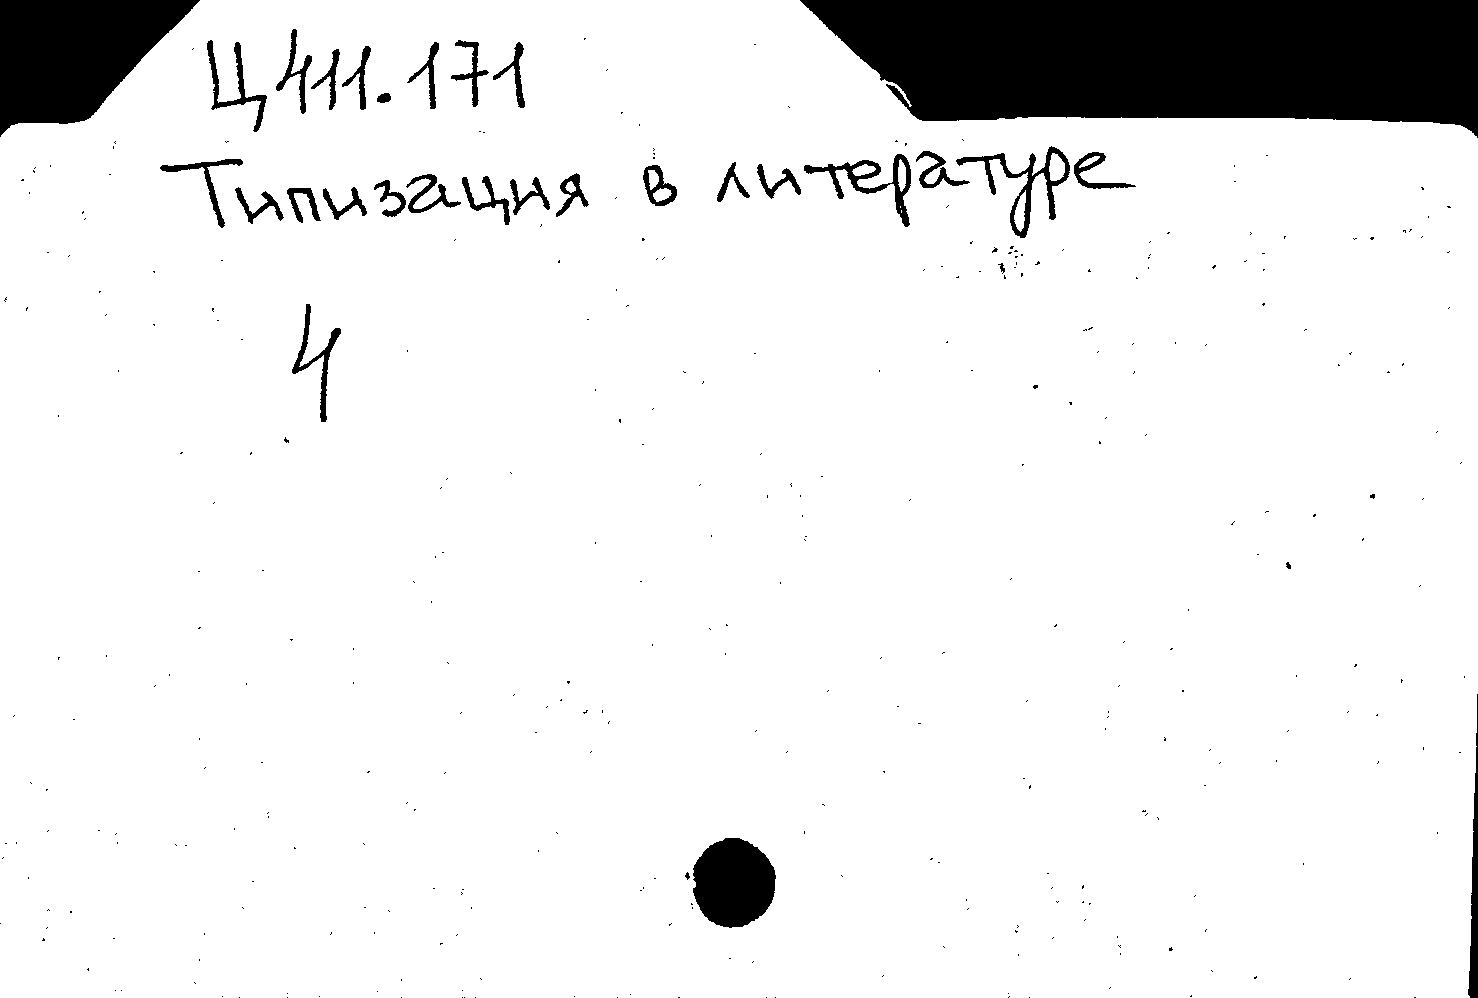 Ц411.171
Типизация в литературе
4